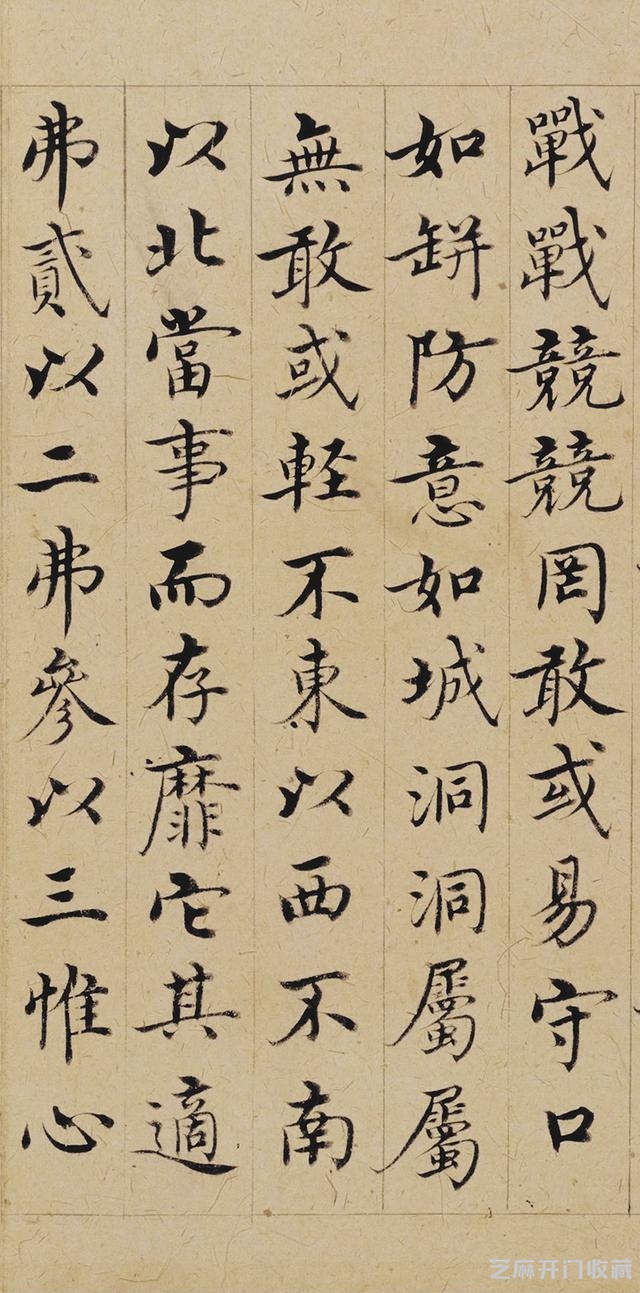 戰戰競競罔敢或易守口
如缾防意如城洞洞屬屬
無敢或軽不東以西不南
以北當事而存靡它其適
弗貳以二弗參以三惟心
芝麻开门收藏